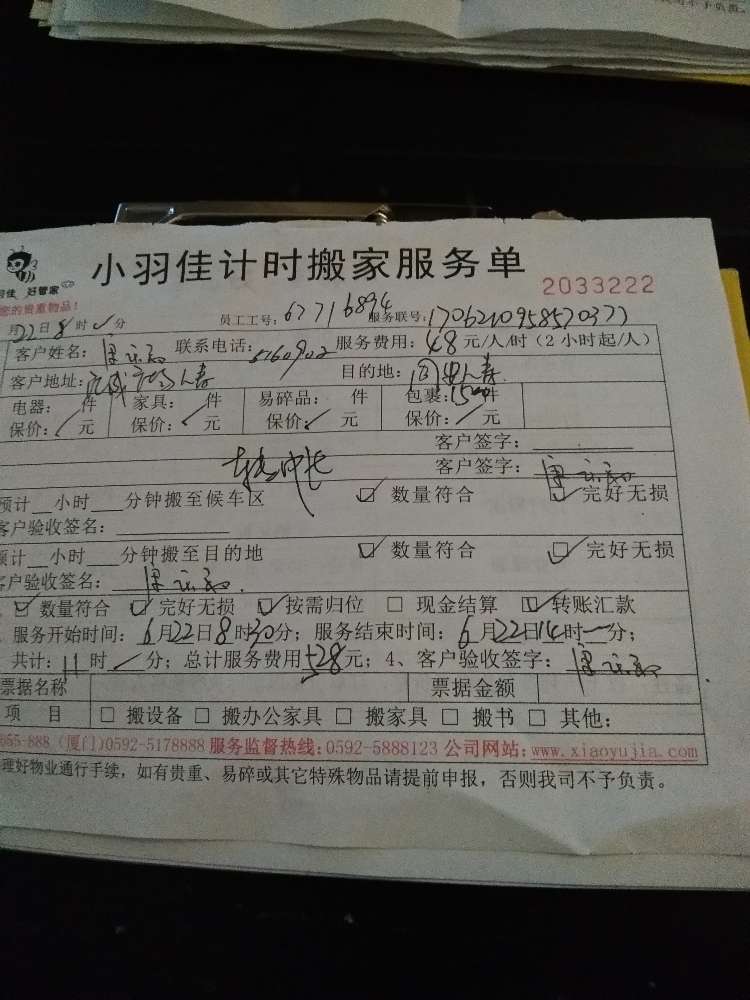 小羽佳计时搬家服务单
2033222
好管家
您的贵重物品!
月22日8时 分 员工工号: 67716894 服务联号: 1706210958570377
客户姓名: 联系电话: 5160902 服务费用: 48元/人/时(2小时起/人)
客户地址: 人寿 目的地: 人寿
电器: 件 家具: 件 易碎品: 件 包裹: 件
保价: 元 保价: 元 保价: 元 保价: 元
客户签字:
客户签字:
预计 小时 分钟搬至候车区 ☑ 数量符合 ☑ 完好无损
客户验收签名:
预计 小时 分钟搬至目的地 ☑ 数量符合 ☑ 完好无损
客户验收签名:
☑ 数量符合 ☑ 完好无损 ☑ 按需归位 □ 现金结算 ☑ 转账汇款
服务开始时间: 6月22日8时30分; 服务结束时间: 6月22日14时 分;
共计: 11时 分; 总计服务费用528元; 4、客户验收签字:
票据名称 票据金额
项 目 □ 搬设备 □ 搬办公家具 □ 搬家具 □ 搬书 □ 其他:
655-888 (厦门)0592-5178888 服务监督热线:0592-5888123 公司网站:www.xiaoyujia.com
理好物业通行手续,如有贵重、易碎或其它特殊物品请提前申报,否则我司不予负责。